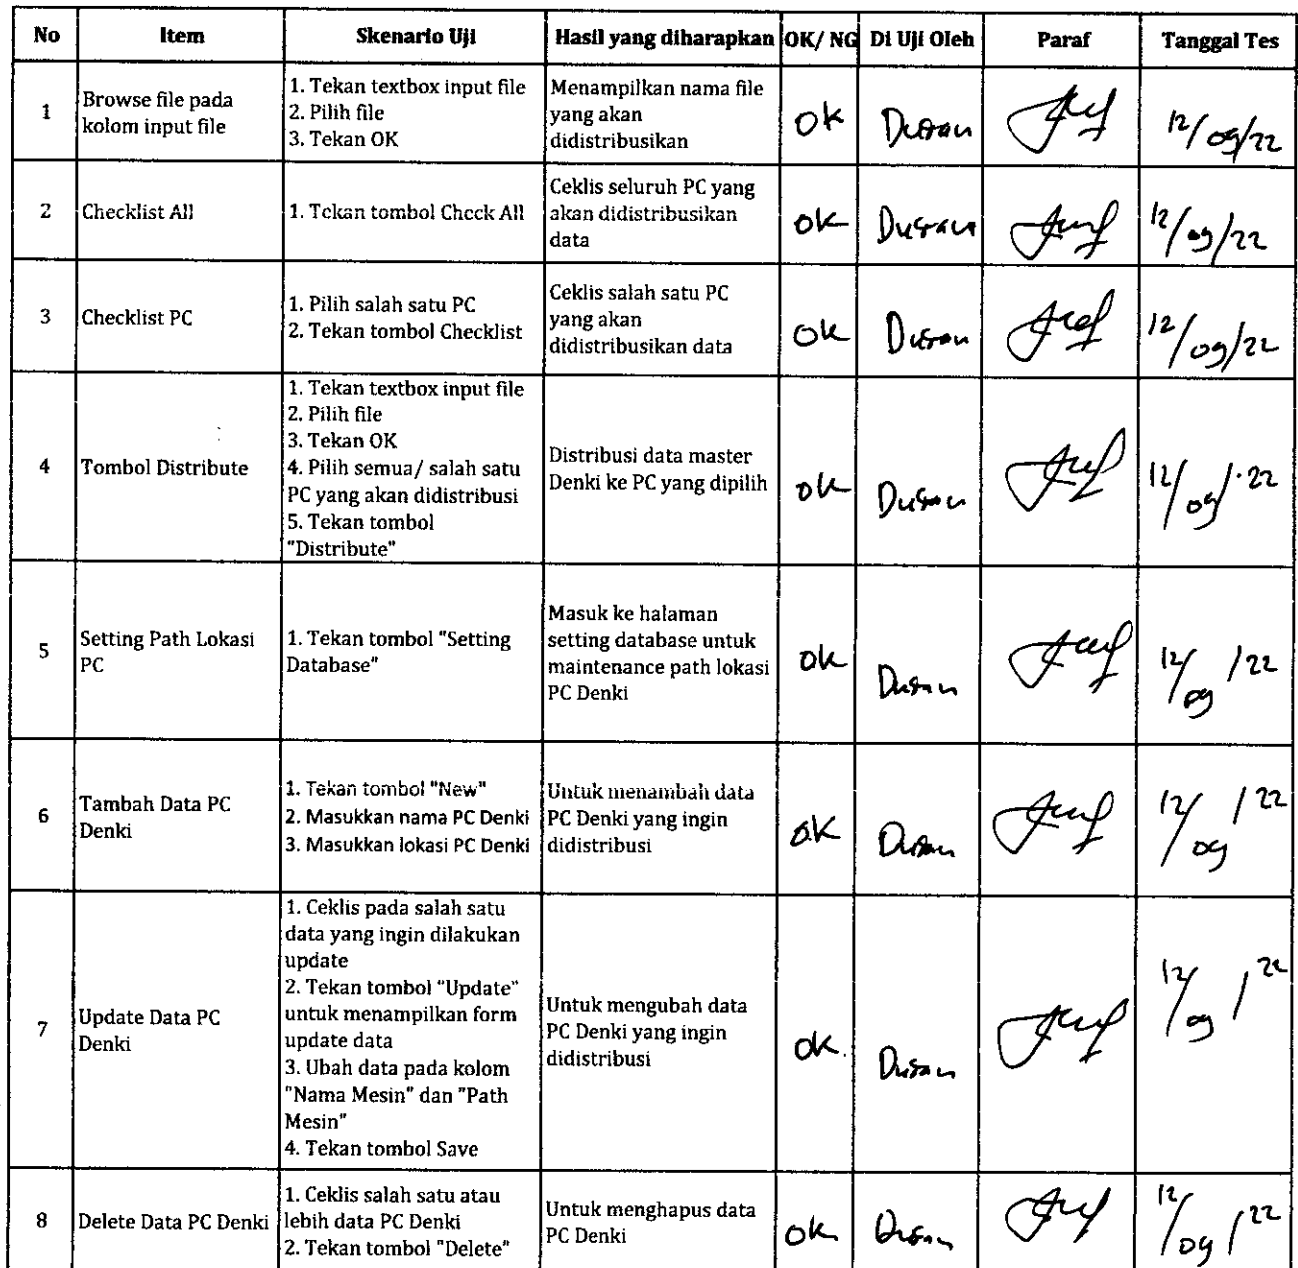 No Item Skenario Uji Hasil yang diharapkan OK/ NG Di Uji Oleh Paraf Tanggal Tes
1
Browse file pada
kolom input file
1. Tekan textbox input file
2. Pilih file
3. Tekan OK
Menampilkan nama file
yang akan
didistribusikan
OK
12/09/22
2
Checklist All
1. Tekan tombol Check All
Ceklis seluruh PC yang
akan didistribusikan
data
OK
12/09/22
3
Checklist PC
1. Pilih salah satu PC
2. Tekan tombol Checklist
Ceklis salah satu PC
yang akan
didistribusikan data
OK
12/09/22
4
Tombol Distribute
1. Tekan textbox input file
2. Pilih file
3. Tekan OK
4. Pilih semua/ salah satu
PC yang akan didistribusi
5. Tekan tombol
"Distribute"
Distribusi data master
Denki ke PC yang dipilih
OK
12/09/22
5
Setting Path Lokasi
PC
1. Tekan tombol "Setting
Database"
Masuk ke halaman
setting database untuk
maintenance path lokasi
PC Denki
OK
12/09/22
6
Tambah Data PC
Denki
1. Tekan tombol "New"
2. Masukkan nama PC Denki
3. Masukkan lokasi PC Denki
Untuk menambah data
PC Denki yang ingin
didistribusi
OK
12/09/22
7
Update Data PC
Denki
1. Ceklis pada salah satu
data yang ingin dilakukan
update
2. Tekan tombol "Update"
untuk menampilkan form
update data
3. Ubah data pada kolom
"Nama Mesin" dan "Path
Mesin"
4. Tekan tombol Save
Untuk mengubah data
PC Denki yang ingin
didistribusi
OK.
12/09/22
8
Delete Data PC Denki
1. Ceklis salah satu atau
lebih data PC Denki
2. Tekan tombol "Delete"
Untuk menghapus data
PC Denki
OK
12/09/22